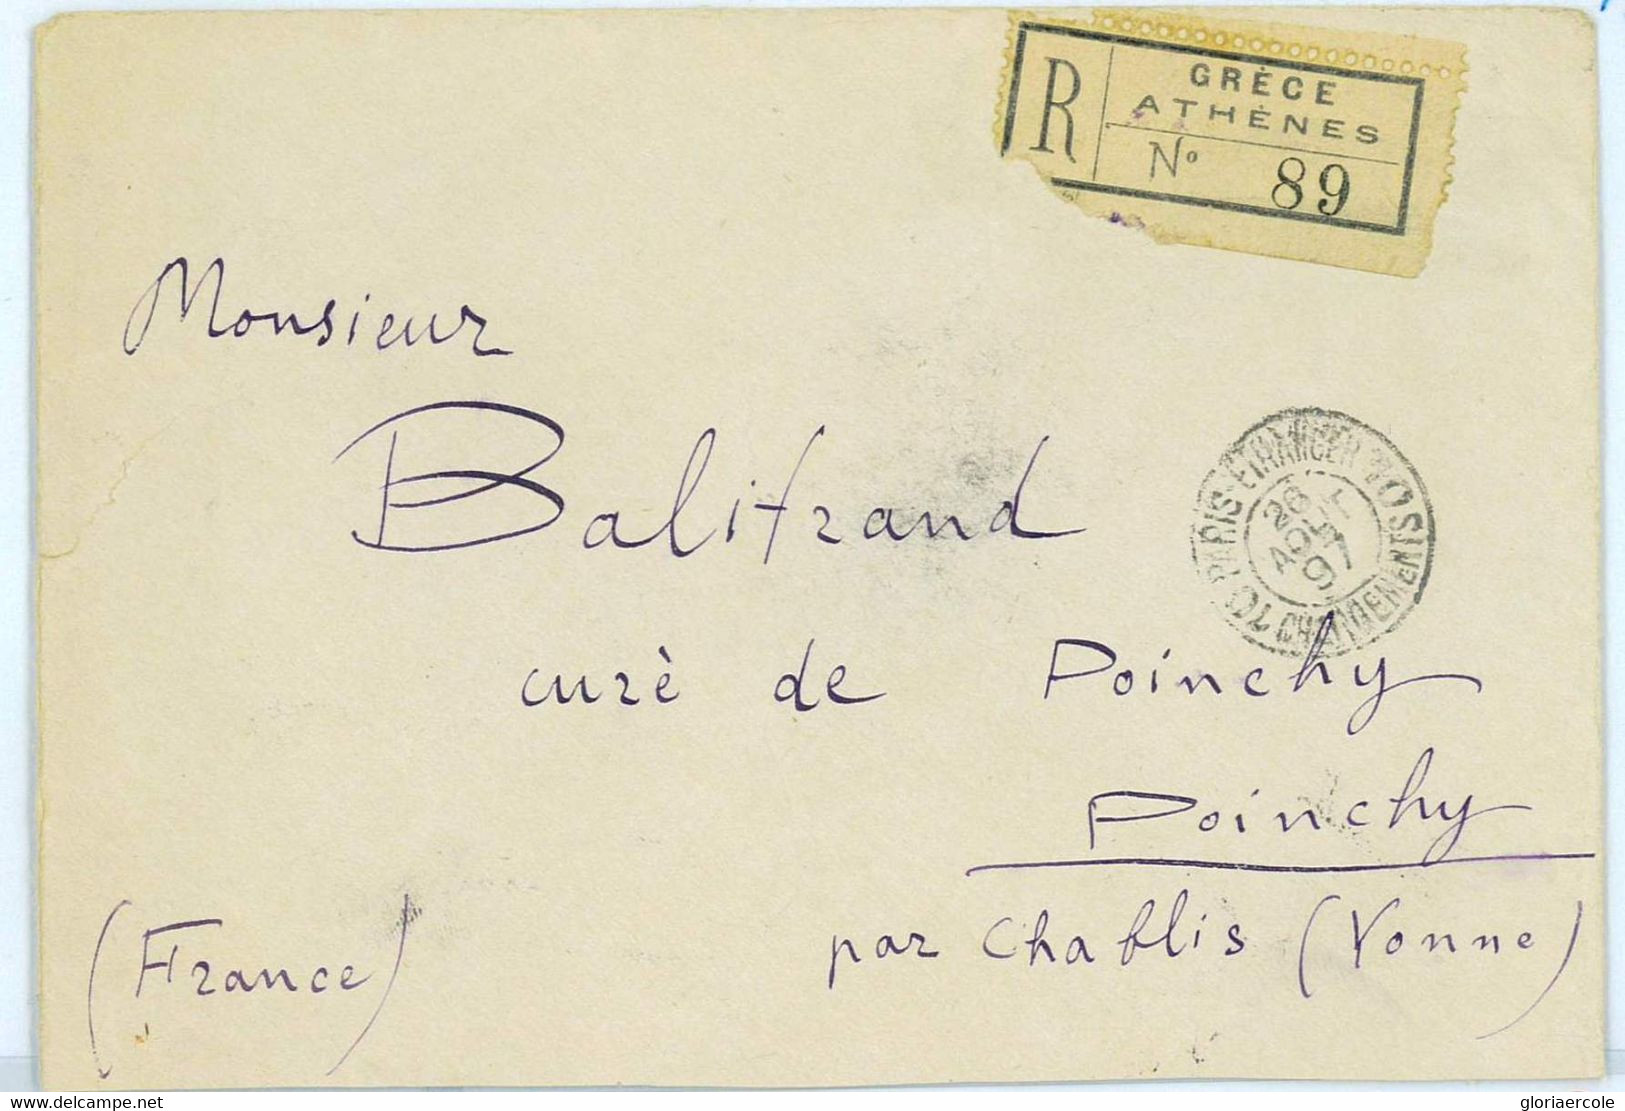 GRÈCE
ATHÈNES
R
N° 89
Monsieur
Balifrand
PARIS-ETRANGER
26
AOUT
97
CHARGEMENTS
curè de Poinchy
Poinchy
par Chablis (Yonne)
(France)
www.delcampe.net
gloriaercole